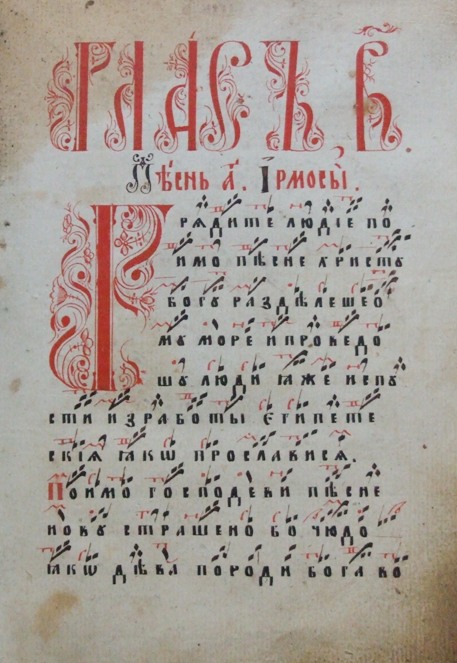 Гласъ, в҃.
Пѣснь а҃. Ірмосы̀.
Грѧдите людїе по
имо пѣсне христꙋ
богꙋ раздѣлешео
мꙋ море и проведо
шꙋ люди ꙗже испꙋ
сти из работы египете
скїѧ ꙗкѡ прослависѧ.
Поимо господеви пѣсне
новꙋ страшено бо чюдо
ꙗкѡ дѣва породи бога во